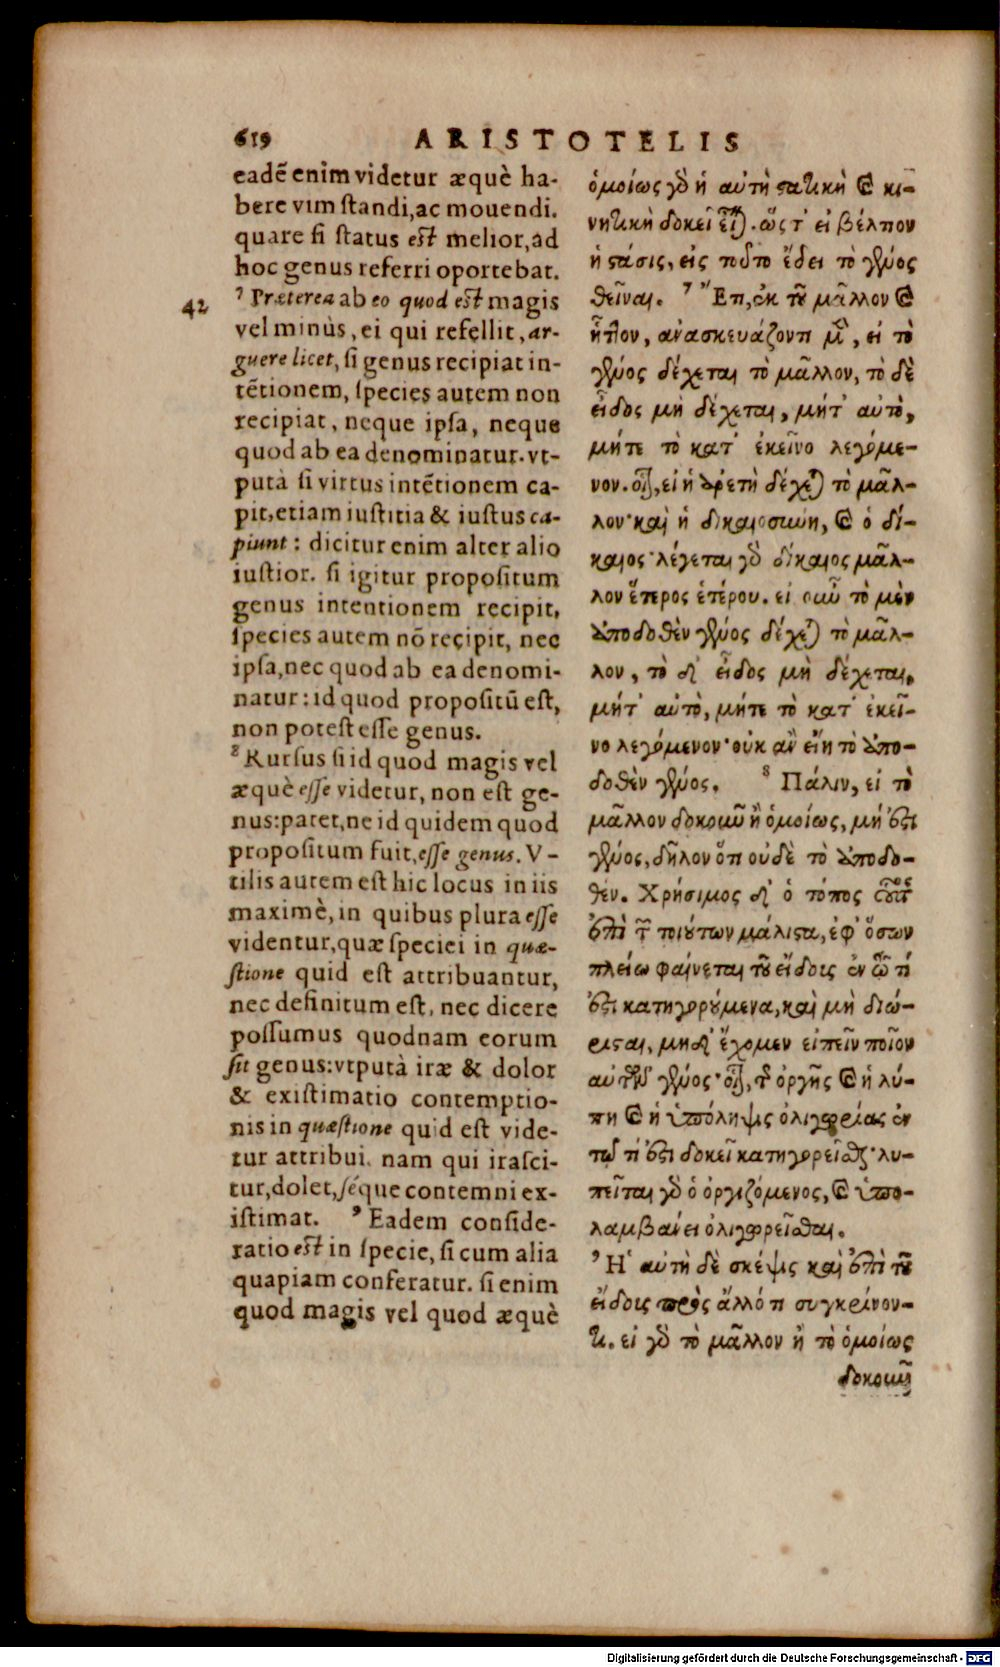 619 ARISTOTELIS
eadē enim videtur æquè ha-
bere vim ſtandi, ac mouendi.
quare ſi ſtatus eſt melior, ad
hoc genus referri oportebat.
42 7 Præterea ab eo quod eſt magis
vel minùs, ei qui refellit, ar-
guere licet, ſi genus recipiat in-
tētionem, ſpecies autem non
recipiat, neque ipſa, neque
quod ab ea denominatur. vt-
putà ſi virtus intētionem ca-
pit, etiam iuſtitia & iuſtus ca-
piunt: dicitur enim alter alio
iuſtior. ſi igitur propoſitum
genus intentionem recipit,
ſpecies autem nō recipit, nec
ipſa, nec quod ab ea denomi-
natur: id quod propoſitū eſt,
non poteſt eſſe genus.
8 Rurſus ſi id quod magis vel
æquè eſſe videtur, non eſt ge-
nus: patet, ne id quidem quod
propoſitum fuit, eſſe genus. V-
tilis autem eſt hic locus in iis
maximè, in quibus plura eſſe
videntur, quæ ſpeciei in quæ-
ſtione quid eſt attribuantur,
nec definitum eſt, nec dicere
poſſumus quodnam eorum
ſit genus: vtputà iræ & dolor
& exiſtimatio contemptio-
nis in quæſtione quid eſt vide-
tur attribui. nam qui iraſci-
tur, dolet, ſéque contemni ex-
iſtimat. 9 Eadem conſide-
ratio eſt in ſpecie, ſi cum alia
quapiam conferatur. ſi enim
quod magis vel quod æquè
ὁμοίως γὸ ἡ αὐτὴ στατικὴ καὶ κι-
νητικὴ δοκεῖ εἶναι. ὥςτ' εἰ βέλτιον
ἡ στάσις, εἰς τοῦτο ἔδει τὸ γένος
θεῖναι. 7 Ἔτι, ἐκ τοῦ μᾶλλον καὶ
ἧττον, ἀνασκευάζοντι μὲν, εἰ τὸ
γένος δέχεται τὸ μᾶλλον, τὸ δὲ
εἶδος μὴ δέχεται, μήτ' αὐτὸ,
μήτε τὸ κατ' ἐκεῖνο λεγόμε-
νον. οἷον, εἰ ἡ ἀρετὴ δέχεται τὸ μᾶλ-
λον· καὶ ἡ δικαιοσύνη, καὶ ὁ δί-
καιος· λέγεται γὸ δίκαιος μᾶλ-
λον ἕτερος ἑτέρου. εἰ οὖν τὸ μὲν
ἀποδοθὲν γένος δέχεται τὸ μᾶλ-
λον, τὸ δ' εἶδος μὴ δέχεται,
μήτ' αὐτὸ, μήτε τὸ κατ' ἐκεῖ-
νο λεγόμενον· οὐκ ἂν εἴη τὸ ἀπο-
δοθὲν γένος. 8 Πάλιν, εἰ τὸ
μᾶλλον δοκοῦν ἢ ὁμοίως, μή ἐστι
γένος, δῆλον ὅτι οὐδὲ τὸ ἀποδο-
θέν. Χρήσιμος δ' ὁ τόπος οὗτος
ἐπὶ τῶν τοιούτων μάλιστα, ἐφ' ὅσων
πλείω φαίνεται τοῦ εἴδους ἐν τῷ τί
ἐστι κατηγορούμενα, καὶ μὴ διώ-
ρισται, μηδ' ἔχομεν εἰπεῖν ποῖον
αὐτῶν γένος· οἷον, τῆς ὀργῆς καὶ ἡ λύ-
πη καὶ ἡ ὑπόληψις ὀλιγωρίας ἐν
τῷ τί ἐστι δοκεῖ κατηγορεῖσθαι· λυ-
πεῖται γὸ ὁ ὀργιζόμενος, καὶ ὑπο-
λαμβάνει ὀλιγωρεῖσθαι.
9 Ἡ αὐτὴ δὲ σκέψις καὶ ἐπὶ τοῦ
εἴδους πρὸς ἄλλό τι συγκρίνον-
τι. εἰ γὸ τὸ μᾶλλον ἢ τὸ ὁμοίως
δοκοῦν
Digitalisierung gefördert durch die Deutsche Forschungsgemeinschaft - DFG